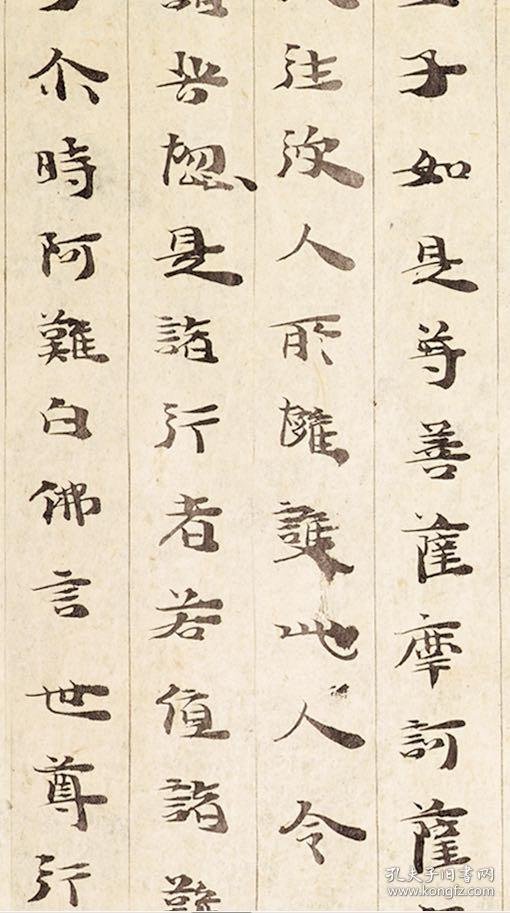 子如是等善薩摩訶薩
往汝人所擁護此人令
咎惱是諸行者若值諸難
尒時阿難白佛言世尊行
孔夫子旧书网
www.kongfz.com